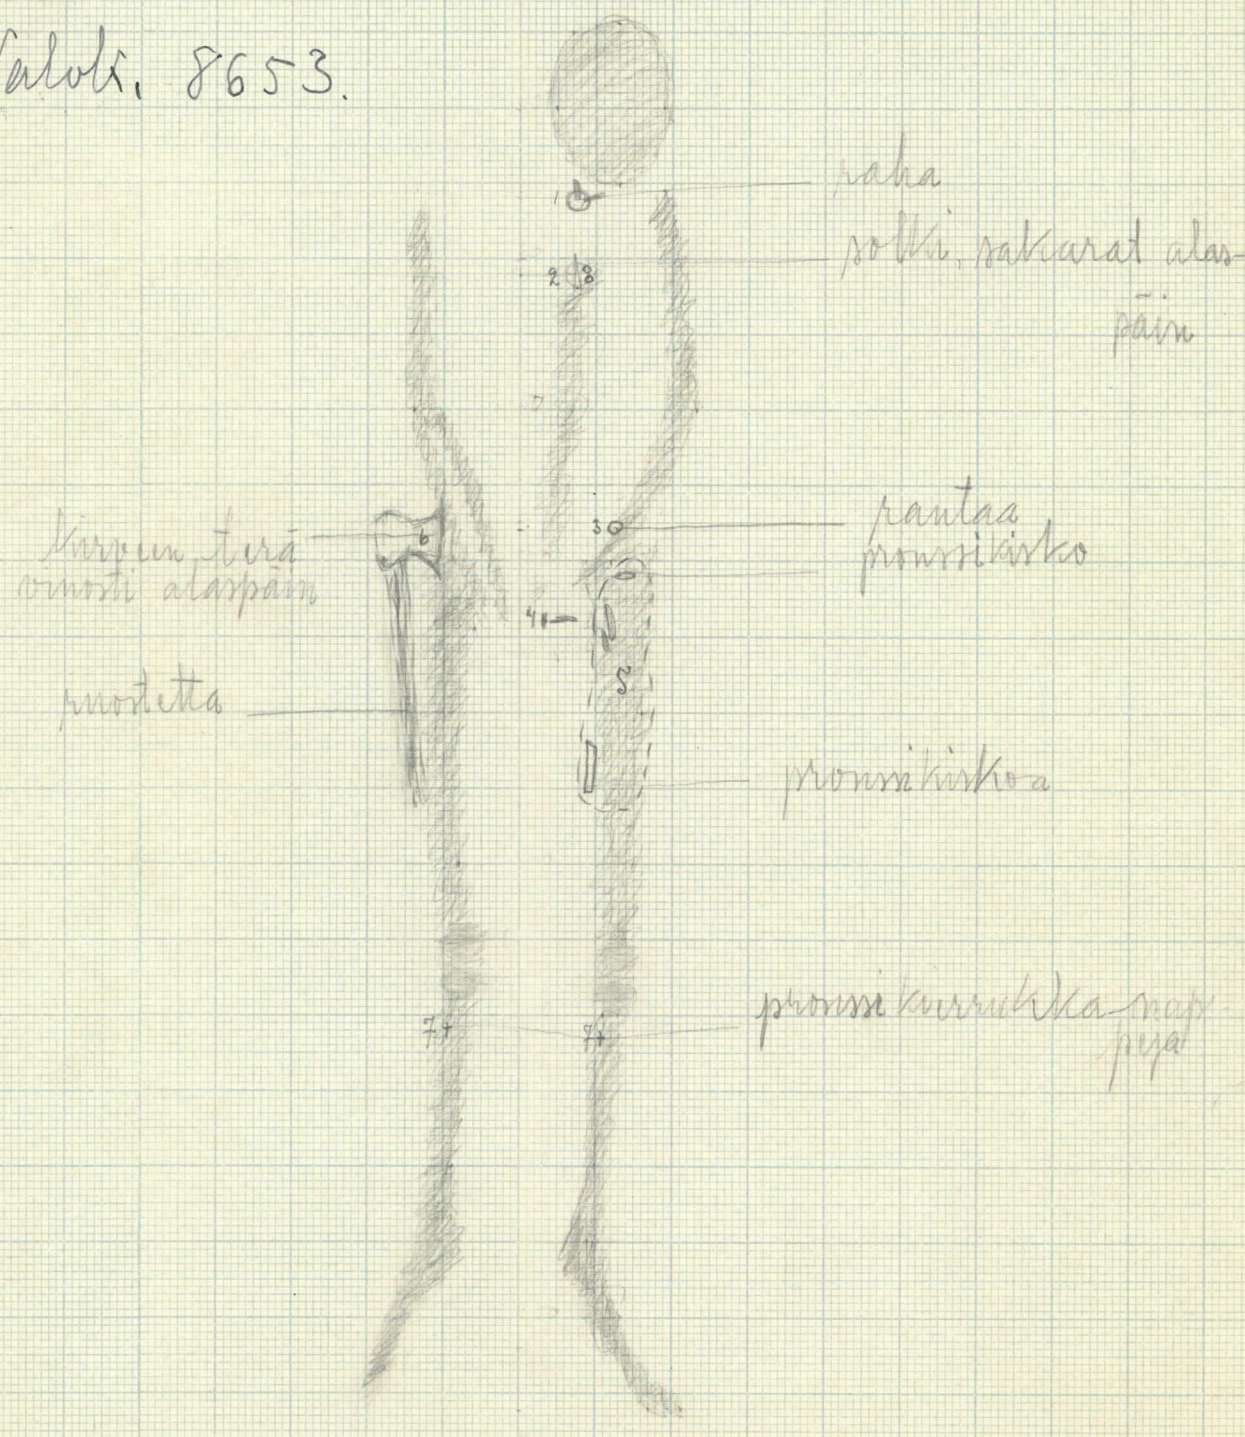 Valok. 8653.
raha
solki, sakarat alas-
päin
rautaa
pronssikisko
Kirveen terä
vinosti alaspäin
ruostetta
pronssikiskoa
pronssikierukka-nap-
peja
1
2
8
3
4
5
6
7
7